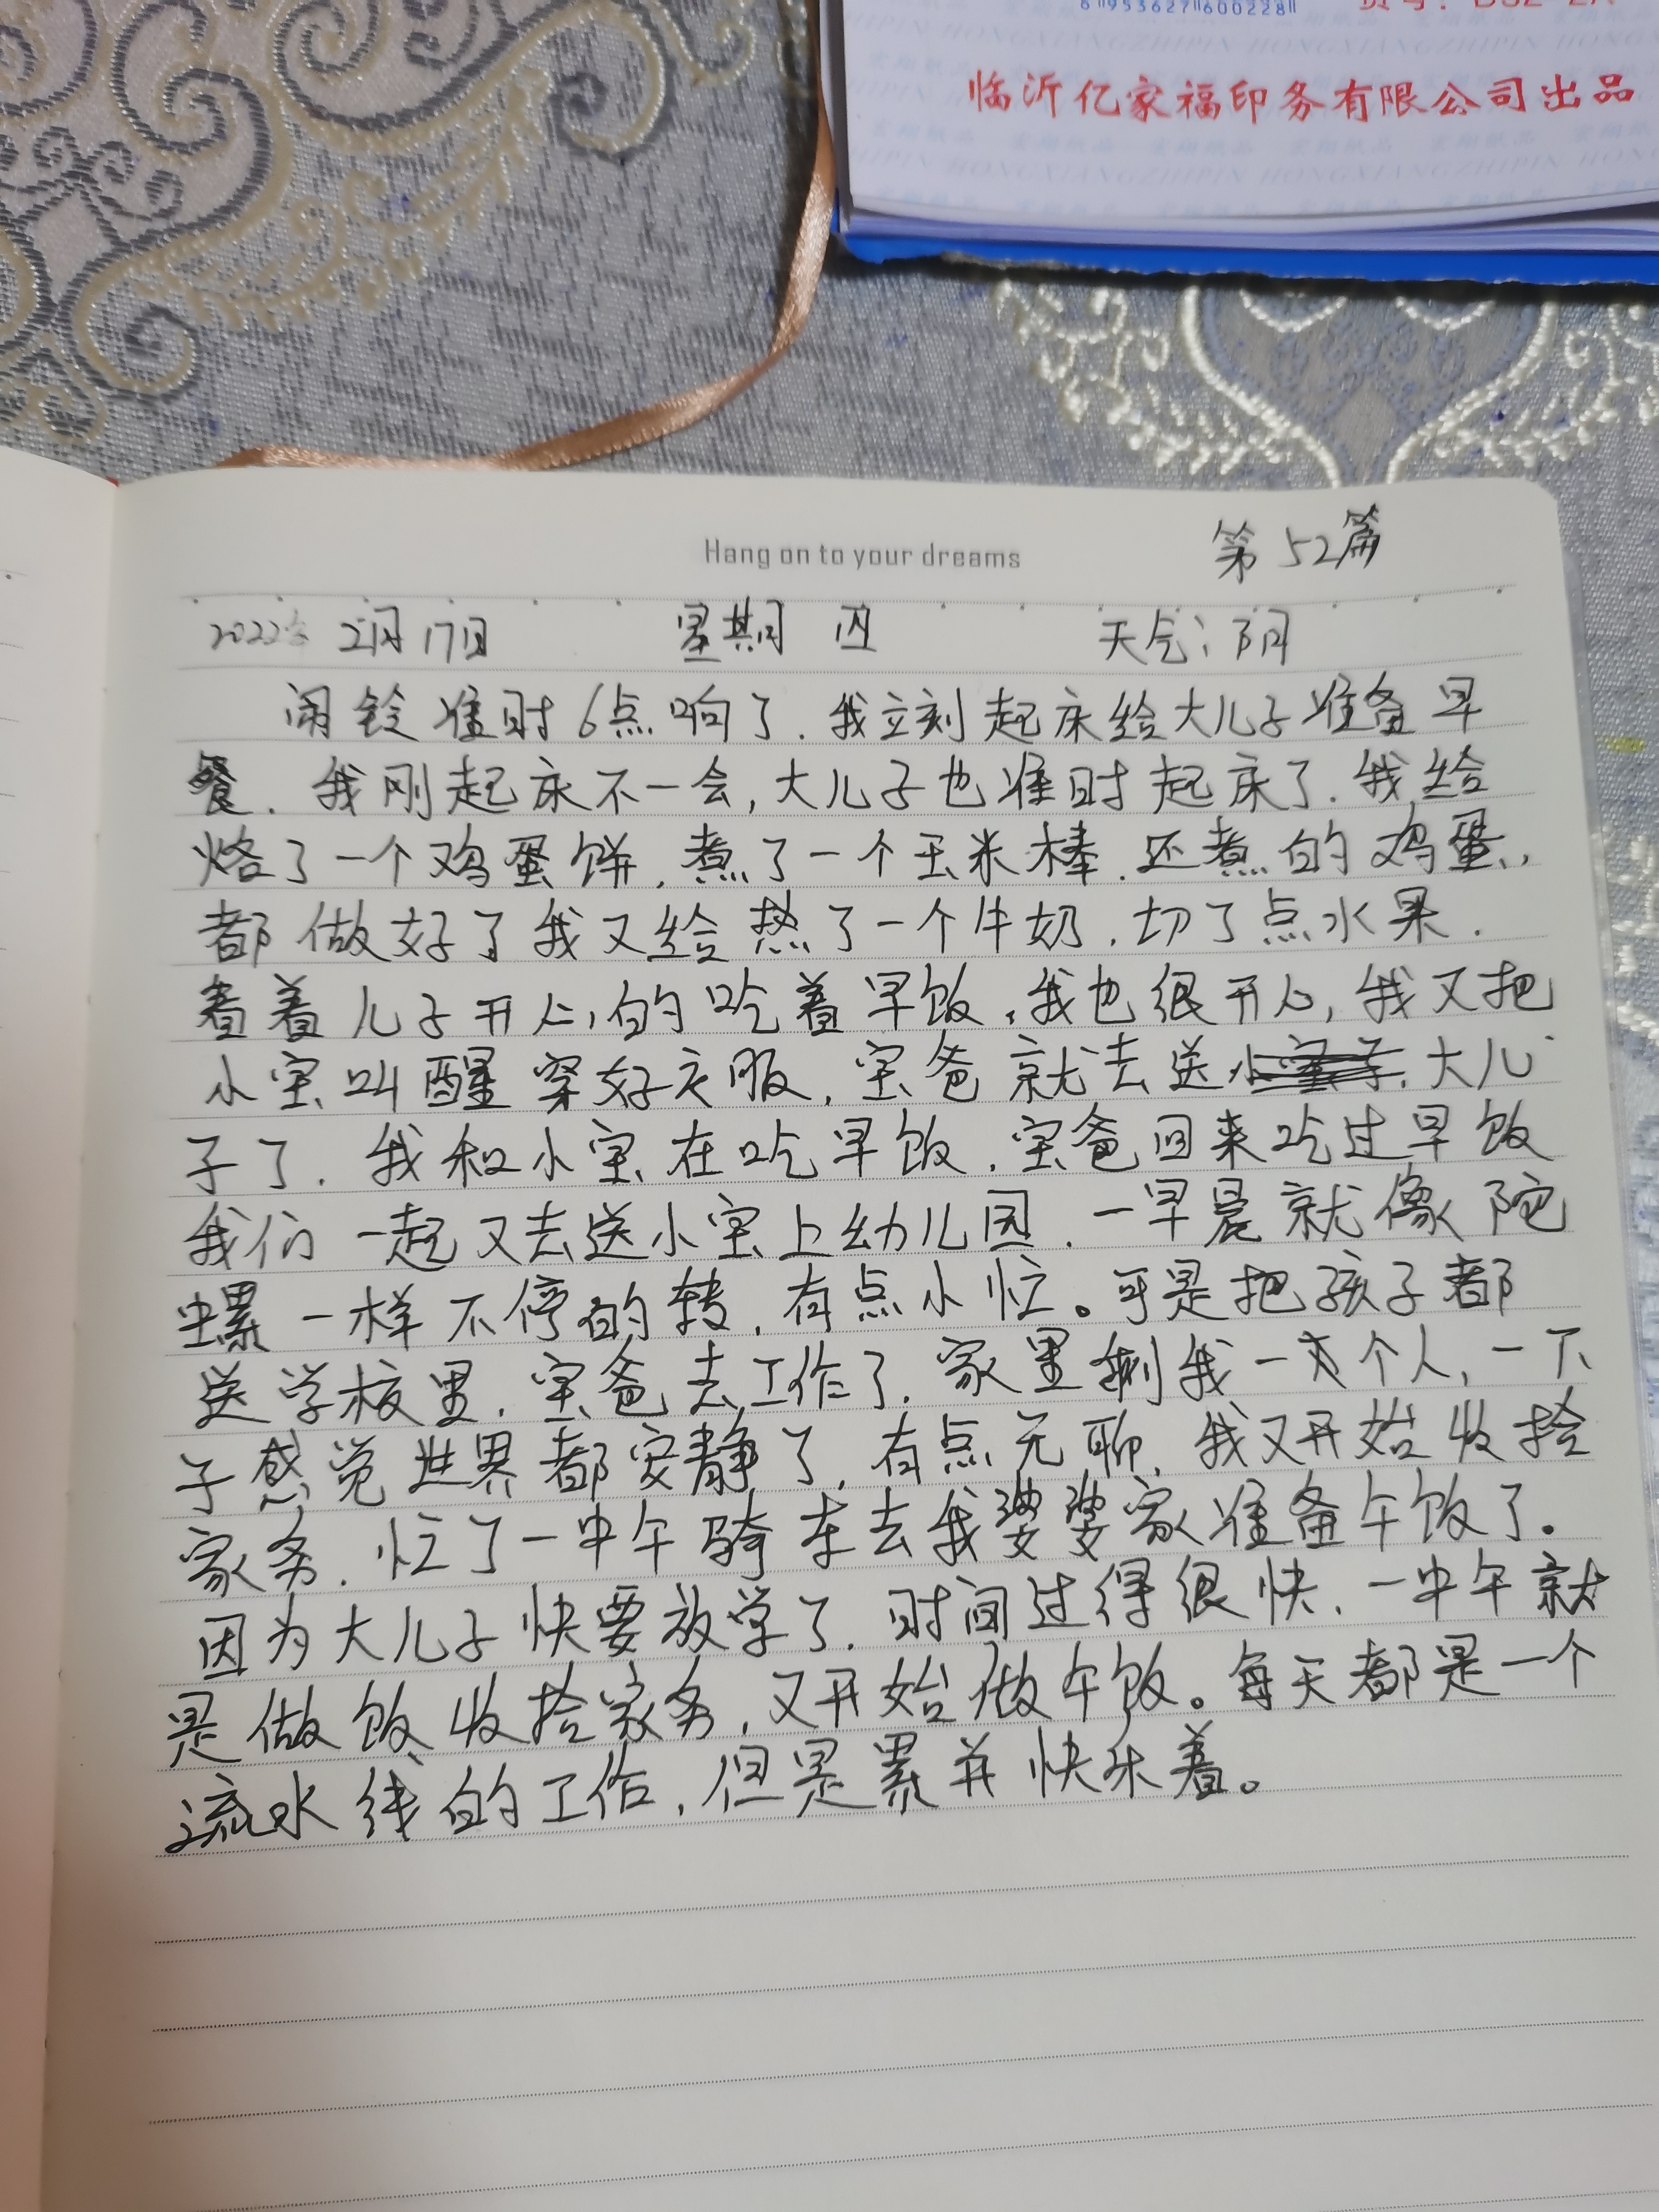 6 953627 600228
临沂亿家福印务有限公司出品
Hang on to your dreams
第52篇
2022年 2月17日 星期四 天气:阴
闹铃准时6点响了.我立刻起床给大儿子准备早
餐.我刚起床不一会,大儿子也准时起床了.我给
烙了一个鸡蛋饼,煮了一个玉米棒.还煮的鸡蛋,
都做好了我又给热了一个牛奶,切了点水果.
看着儿子开心的吃着早饭,我也很开心,我又把
小宝叫醒穿好衣服,宝爸就去送大儿
子了.我和小宝在吃早饭,宝爸回来吃过早饭
我们一起又去送小宝上幼儿园.一早晨就像陀
螺一样不停的转,有点小忙。可是把孩子都
送学校里,宝爸去工作了,家里剩我一个人,一下
子感觉世界都安静了,有点无聊,我又开始收拾
家务.忙了一中午骑车去我婆婆家准备午饭了。
因为大儿子快要放学了.时间过得很快,一中午就
是做饭收拾家务,又开始做午饭。每天都是一个
流水线的工作,但是累并快乐着。